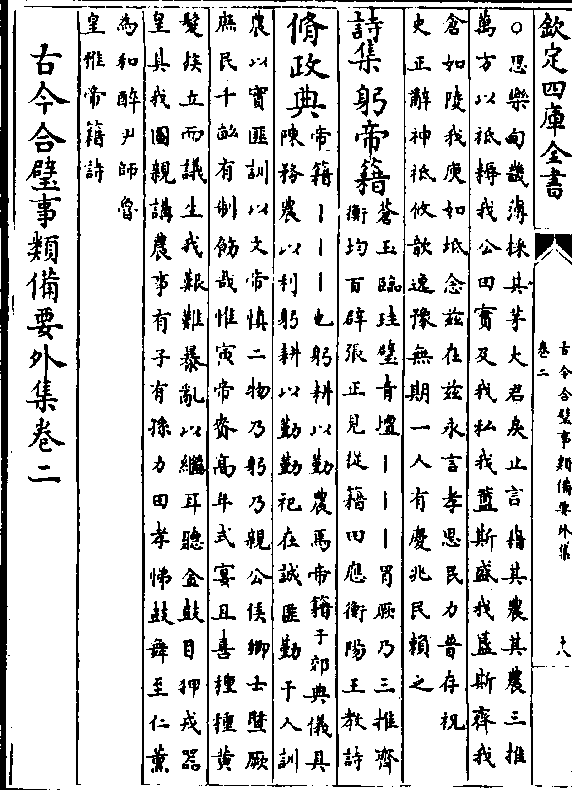 欽定四庫全書
古今合璧事類備要外集
卷二
十八
○思樂甸畿薄採其茅大君戾止言籍其農其農三推
萬方以祗耨我公田實及我私我簠斯盛我簋斯齊我
倉如陵我庾如坻念兹在兹永言孝思民力普存祝
史正辭神祗攸歆逸豫無期一人有慶兆民賴之
詩集 躬帝籍 蒼玉臨珪璧青壇丨丨丨胃厥乃三推齊
衡均百辟張正見從籍田應衡陽王教詩
脩政典 帝籍丨丨丨也躬耕以勤農焉帝籍于郊典儀具
陳務農以利躬耕以勤勤祀在誠匪勤于人訓
農以實匪訓以文帝慎二物乃躬乃親公侯卿士暨厥
庶民千畝有制飭哉惟寅帝齊高年式宴且喜種種黄
髮挨立而議生我艱難暴亂以繼耳聽金鼓目狎戎器
皇具我圖親講農事有子有孫力田孝悌鼓舞至仁薰
為和醉尹師魯
皇雅帝籍詩
古今合璧事類備要外集卷二